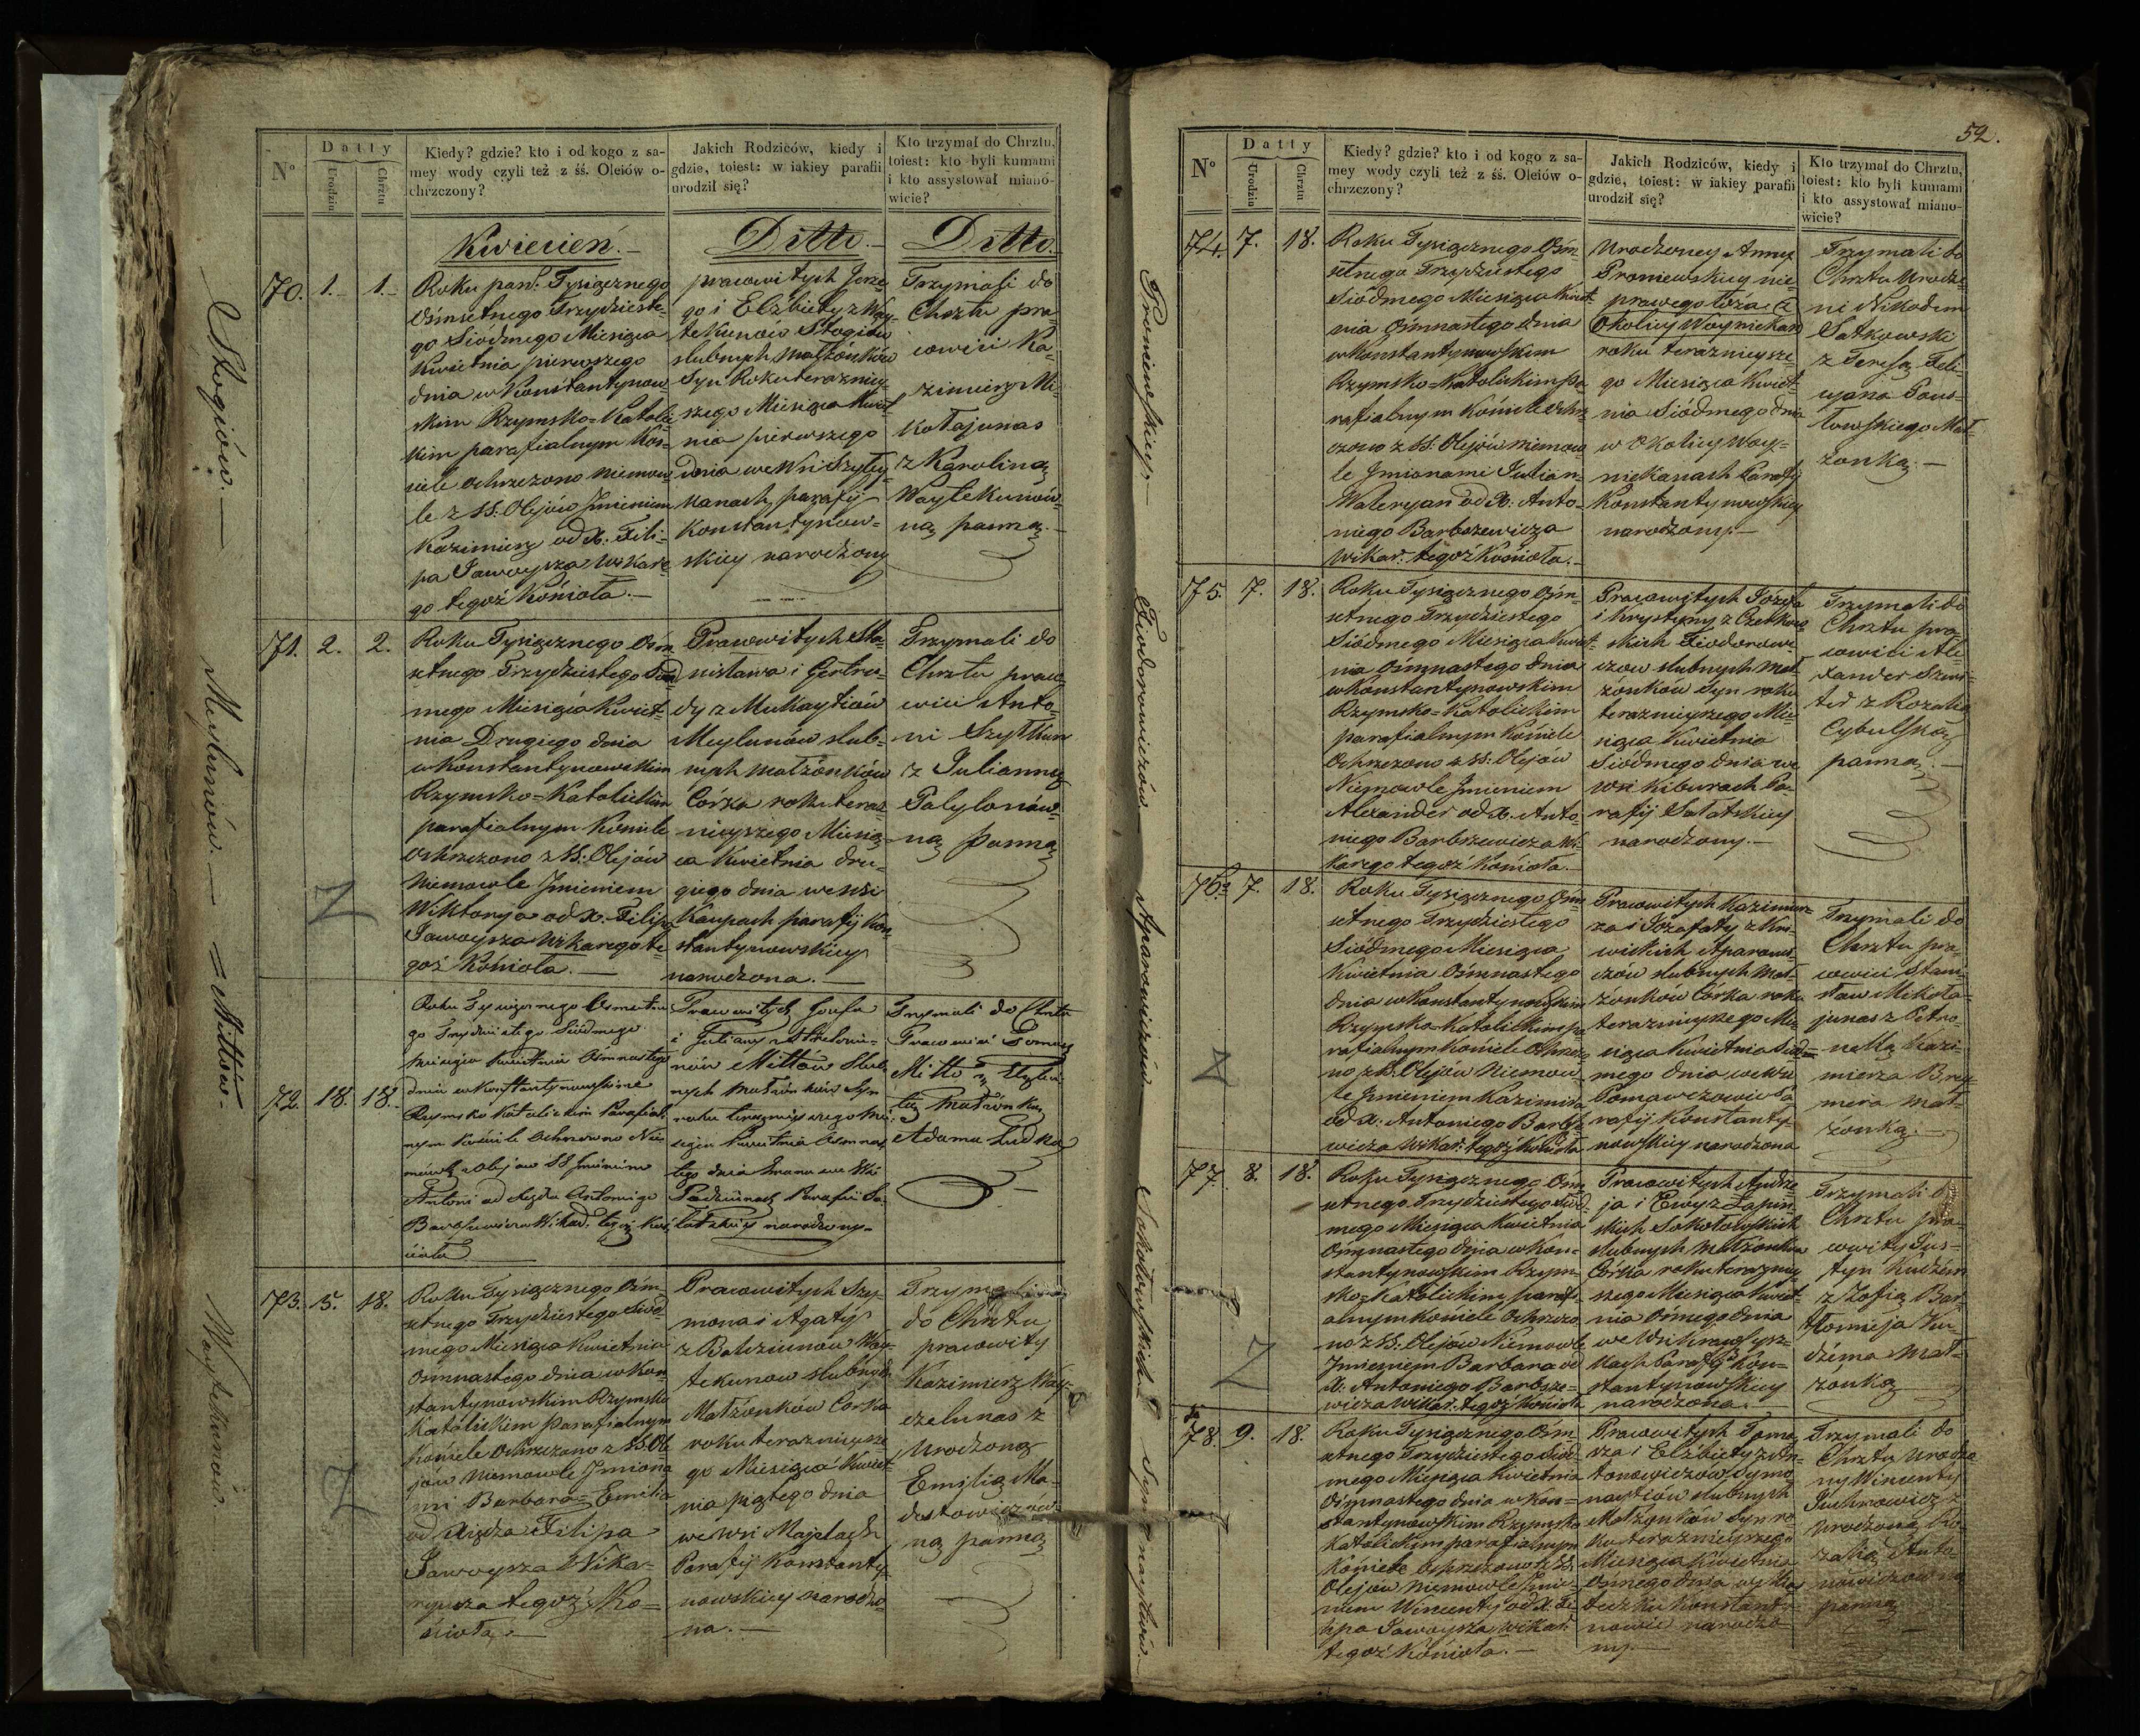 N°
Datty
Urodziu
Chrztu
Kiedy? gdzie? kto i od kogo z sa-
mey wody czyli też z śś. Oleiów o-
chrzczony?
Jakich Rodziców, kiedy i
gdzie, toiest: w iakiey parafii
urodził się?
Kto trzymał do Chrztu,
toiest: kto byli kumami
i kto assystował miano-
wicie?
Kwiecień.
Ditto.
Ditto.
Stogiów.
70.
1.
1.
Roku pań. Tysiącznego
Ośmsetnego Trzydzieste-
go Siódmego Miesiąca
Kwietnia pierwszego
dnia w Konstantynow
skim Rzymsko=Katolic
kim parafialnym Koś-
ciele ochrzczono niemow
le z SS. Olejów Imieniem
Kazimierz od X. Fili-
pa Jawoysza Wikare-
go tegoż Kościoła.
pracowitych Jerze
go i Elżbiety z Way-
tekunów Stogiów
slubnych małżonków
Syn Roku terazniey
szego Miesiąca Kwiet
nia pierwszego
dnia we Wsi
parafij
Konstantynow-
skiey narodzony
Trzymali do
Chrztu pra-
cowici Ka-
zimierz Mi-
kołajunas
z Karoliną
Waytekunów-
ną panną.
71.
2.
2.
Roku Tysiącznego Ośm
setnego Trzydziestego Siód
mego Miesiąca Kwiet-
nia Drugiego dnia
w Konstantynowskim
Rzymsko=Katolickim
parafialnym Kościele
Ochrzczono z SS. Olejów
Niemowle Imieniem
Wiktorya od X. Filipa
Jawoysza Wikarego te
goż Kościoła.
Pracowitych Sta-
nisława i Gertru-
dy z
Meylunów slub-
nych małżonków
Córka roku teraz-
nieyszego Miesią-
ca Kwietnia dru-
giego dnia we Wsi
Kaupach parafij Kon
stantynowskiey
narodzona.
Trzymali do
Chrztu praco
wici Anto-
ni
z Julianną
panną
Meylunów.
Mittów.
72.
18.
18.
Roku Tysiącznego Ośmsetne
go Trzydziestego Siódmego
Miesiąca Kwietnia Ośmnastego
dnia w Konstantynowskim
Rzymsko Katolickim Parafial
nym Kościele Ochrzczono Nie
mowlę z Olejow SS Imieniem
Antoni od Xiędza Antoniego
Barbszewicza Wikar. tegoż Koś
cioła
Pracowitych Jozefa
i Juliany
Mittow Slub
nych Małżonkow Syn
roku teraznieyszego Mie
siąca Kwietnia Ośmnas
tego dnia zrana we Wsi
Parafii Sa
łatskiey narodzony.
Trzymali do Chrztu
Pracowici Tomasz
Mitto z Elzbie
tą Małżonką
Adama
73.
5.
18.
Roku Tysiącznego Ośm
setnego Trzydziestego Siód
mego Miesiąca Kwietnia
Ośmnastego dnia w Kon
stantynowskim Rzymsko
Katolickim parafialnym
Kościele Ochrzczono z SS. Ole
jow Niemowle Imiona
mi Barbara=Emilia
od Xiędza Filipa
Jawoysza Wika-
ryusza tegoż Ko=
ścioła.
Pracowitych Szy-
mona i Agaty
z Balziunow Way-
tekunow slubnych
Małżonków Córka
roku teraznieysze
go Miesiąca Kwiet-
nia piątego dnia
we Wsi Majelach
Parafij Konstanty-
nowskiey narodzo-
na.
Trzymali
do Chrztu
pracowity
Kazimierz Way-
czelunas z
Urodzoną
Emilią Mo-
destowiczów-
ną panną
Waytekunów.
52.
N°
Datty
Urodziu
Chrztu
Kiedy? gdzie? kto i od kogo z sa-
mey wody czyli też z śś. Oleiów o-
chrzczony?
Jakich Rodziców, kiedy i
gdzie, toiest: w iakiey parafii
urodził się?
Kto trzymał do Chrztu,
toiest: kto byli kumami
i kto assystował miano-
wicie?
74.
7.
18.
Roku Tysiącznego Ośm
setnego Trzydziestego
Siódmego Miesiąca Kwiet
nia Ośmnastego dnia
w Konstantynowskim
Rzymsko=Katolickim pa
rafialnym Kościele Ochrz
czono z SS. Olejów niemow
le Imionami Julian-
Waleryan od X. Anto-
niego Barbszewicza
Wikar. tegoż Kościoła.
Urodzoney Anny
Proniewskiey nie-
prawego łoża z
Okolicy Woyniekan
roku teraznieysze
go Miesiąca Kwiet-
nia Siódmego dnia
w Okolicy Woy-
niekanach Parafij
Konstantynowskiey
narodzony.
Trzymali do
Chrztu Urodze-
ni Nikodem
Satkowski
z Teresą Feli-
cyana Paus-
towskiego Mał-
żonką.
Proniewskiey.
75.
7.
18.
Roku Tysiącznego Ośm-
setnego Trzydziestego
Siódmego Miesiąca Kwiet-
nia Ośmnastego dnia
w Konstantynowskim
Rzymsko=Katolickim
parafialnym Kościele
Ochrzczono z SS. Olejów
Niemowle Imieniem
Alexander od X. Anto-
niego Barbszewicza Wi-
karego tegoż Kościoła.
Pracowitych Jozefa
i Krystyny z
skich Fiodorowi-
czow slubnych Mał-
żonków Syn roku
teraznieyszego Mie
siąca Kwietnia
Siódmego dnia we
Wsi Kiburach Pa-
rafij Sałatskiey
narodzony.
Trzymali do
Chrztu pra-
cowici Ale-
xander
z Rozalią
Cybulską
panną.
Fiodorowiczów
76.
7.
18.
Roku Tysiącznego Ośm
setnego Trzydziestego
Siódmego Miesiąca
Kwietnia Ośmnastego
dnia w Konstantynowskim
Rzymsko Katolickim pa
rafialnym Kościele Ochrzczo
no z SS. Olejow Niemow
le Imieniem Kazimira
od X. Antoniego Barbsze
wicza Wikar. tegoż Kościoła
Pracowitych Kazimierz-
za i Jozafaty z
Aparowi-
czów slubnych Mał-
żonków Córka roku
teraznieyszego Mie
siąca Kwietnia Siód=
mego dnia we Wsi
Pomarczowie Pa
rafij Konstanty-
nowskiey narodzona
Trzymali do
Chrztu pra-
cowici Stani-
sław Mikoła-
junas z Petro-
nellą Kazi-
mierza
Mał-
żonką.
Aparowiczów
77.
8.
18.
Roku Tysiącznego Ośm
setnego Trzydziestego Siód
mego Miesiąca Kwietnia
Ośmnastego dnia w Kon=
stantynowskim Rzym-
sko=Katolickim parafi-
alnym Kościele Ochrzczo
no z SS. Olejów Niemowle
Imieniem Barbara od
X. Antoniego Barbsze=
wicza Wikar. tegoż Kościoła
Pracowitych Andrze
ja i Ewy z Łapin-
skich Sokołowskich
slubnych Małżonków
Córka roku teraznie
szego Miesiąca Kwiet-
nia Ośmego dnia
we Wsi
Parafij Kon-
stantynowskiey
narodzona.
Trzymali do
Chrztu pra-
cowity Jus-
tyn Kudzin
z Zofią Bar-
tłomieja Ku-
dzina Mał-
żonką
Sokołowskich
78.
9.
18.
Roku Tysiącznego Ośm
setnego Trzydziestego Siód
mego Miesiąca Kwietnia
Ośmnastego dnia w Kon=
stantynowskim Rzymsko
Katolickim parafialnym
Kościele Ochrzczono z SS.
Olejow Niemowle Imie-
niem Wincenty od X. Fi
lipa Jawoysza Wikar.
tegoż Kościoła.
Pracowitych Toma
sza i Elżbiety z An-
tonowiczow Symo
naytiów slubnych
Małżonkow Syn ro
ku teraznieyszego
Miesiąca Kwietnia
Ośmego dnia w Mias
teczku Konstanty
nowie narodzo
ny.
Trzymali do
Chrztu Urodzo
ny Wincenty
Juchnowicz z
Urodzoną Ro-
zalią Anto
nowiczowną
panną
Symonaytiów.